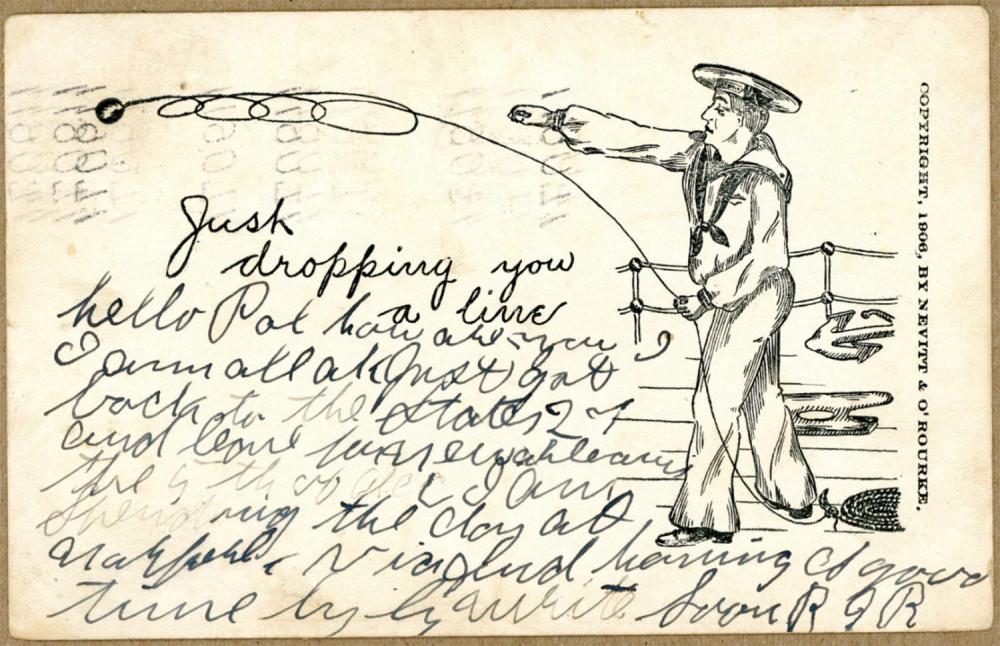 Just
dropping you
a line
hello Pat how are you
I am all ok Just got
back to the States 27
and leave for new orleans
the 5 th
Spending the day at
Va and having a good
time by by write Soon R G R
COPYRIGHT, 1906, BY NEVITT & O'ROURKE.